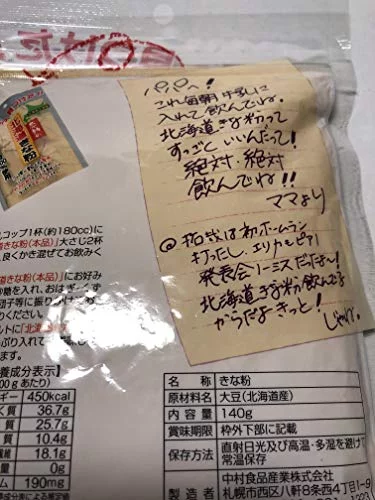 パパへ!
これ毎朝牛乳に
入れて飲んでね。
北海道きな粉って
すっごくいいんだって!
絶対、絶対
飲んでね!!
ママより
拓哉は初ホームラン
打ったし、エリカもピアノ
発表会ノーミスだったよ~!
北海道きな粉飲んでる
からだよきっと!
じゃね。
コップ1杯(約180cc)に
道きな粉(本品)」大さじ2杯
良くかき混ぜてお飲みく
道きな粉(本品)」にお好み
糖を入れ、おはぎ・くず
団子等に振りか
ください。
ルトに「北海道
ぷり入れて
養成分表示】
00g あたり)
ギー 450kcal
く質 36.7g
質 25.7g
質 10.4g
繊維 18.1g
ム 0mg
ウム 190mg
名称 きな粉
原材料名 大豆(北海道産)
内容量 140g
賞味期限 枠外下部に記載
保存方法 直射日光及び高温・多湿を避けて
常温保存
製造者 中村食品産業株式会社
札幌市西区八軒8条西4丁目